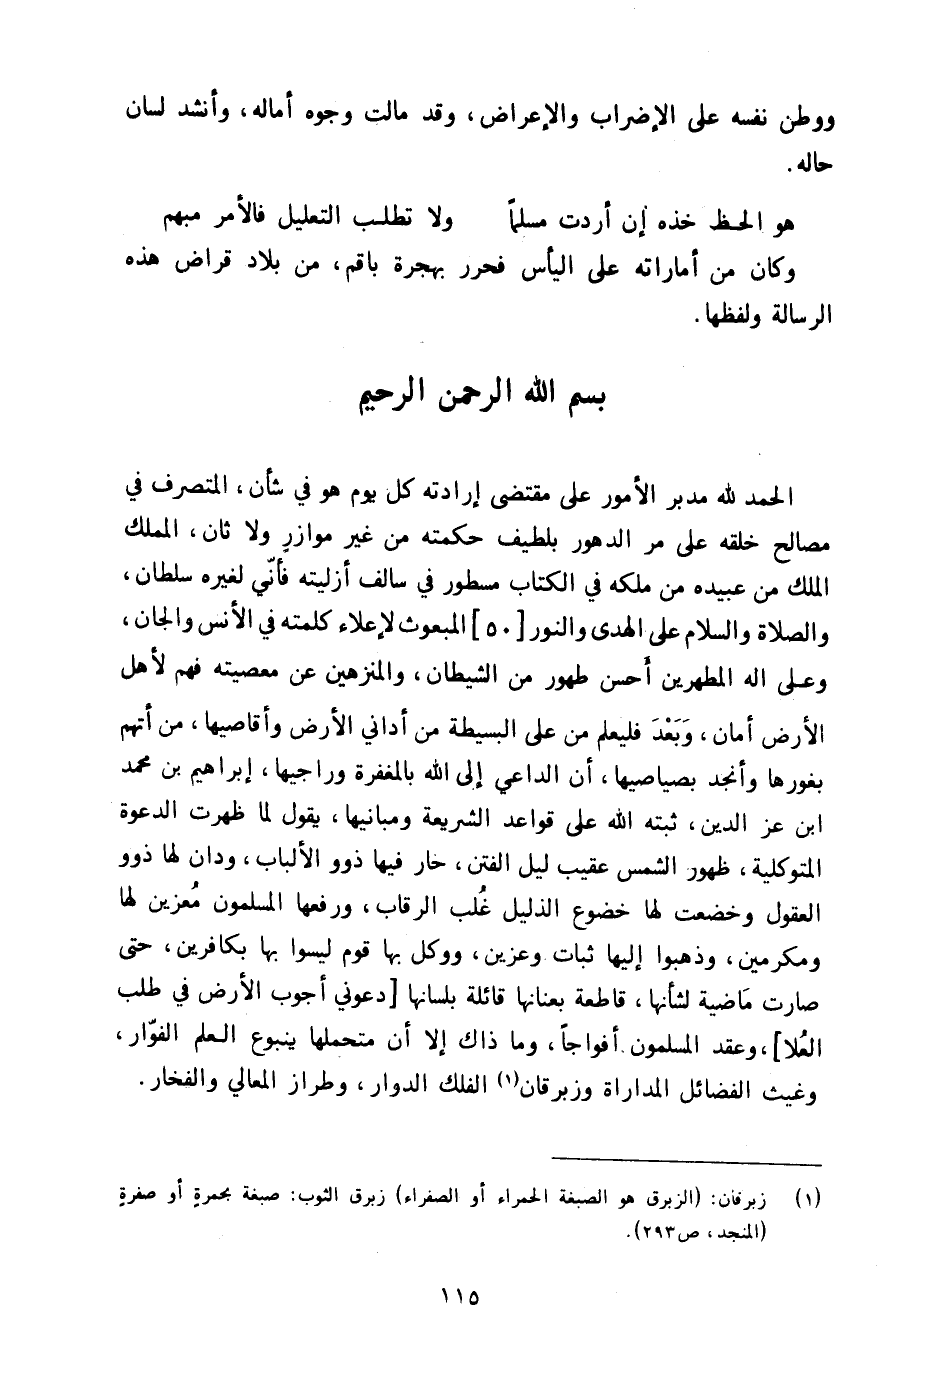 ووطن نفسه على الإضراب والإعراض، وقد مالت وجوه أماله، وأنشد لسان
حاله.
هو الحظ خذه إن أردت مسلماً ولا تطلب التعليل فالأمر مبهم
وكان من أماراته على اليأس فحرر بهجرة باقم، من بلاد قراض هذه
الرسالة ولفظها.
بسم الله الرحمن الرحيم
الحمد لله مدبر الأمور على مقتضى إرادته كل يوم هو في شأن، المتصرف في
مصالح خلقه على مر الدهور بلطيف حكمته من غير موازرٍ ولا ثان، المملك
الملك من عبيده من ملكه في الكتاب مسطور في سالف أزليته فأنّي لغيره سلطان،
والصلاة والسلام على الهدى والنور [٥٠] المبعوث لإعلاء كلمته في الأنس والجان،
وعلى اله المطهرين أحسن طهور من الشيطان، والمنزهين عن معصيته فهم لأهل
الأرض أمان، وَبَعْدَ فليعلم من على البسيطة من أداني الأرض وأقاصيها، من أتهم
بغورها وأنجد بصياصيها، أن الداعي إلى الله بالمغفرة وراجيها، إبراهيم بن محمد
ابن عز الدين، ثبته الله على قواعد الشريعة ومبانيها، يقول لما ظهرت الدعوة
المتوكلية، ظهور الشمس عقيب ليل الفتن، خار فيها ذوو الألباب، ودان لها ذوو
العقول وخضعت لها خضوع الذليل غُلب الرقاب، ورفعها المسلمون مُعزين لها
ومكرمين، وذهبوا إليها ثبات وعزين، ووكل بها قوم ليسوا بها بكافرين، حتى
صارت مَاضية لشأنها، قاطعة بعنانها قائلة بلسانها [دعوني أجوب الأرض في طلب
العُلا]، وعقد المسلمون أفواجاً، وما ذاك إلا أن متحملها ينبوع العلم الفوّار،
وغيث الفضائل المداراة وزبرقان(١) الفلك الدوار، وطراز المعالي والفخار.
(١) زبرقان: (الزبرق هو الصبغة الحمراء أو الصفراء) زبرق الثوب: صبغة بحمرةٍ أو صفرةٍ
(المنجد، ص٢٩٣).
١١٥